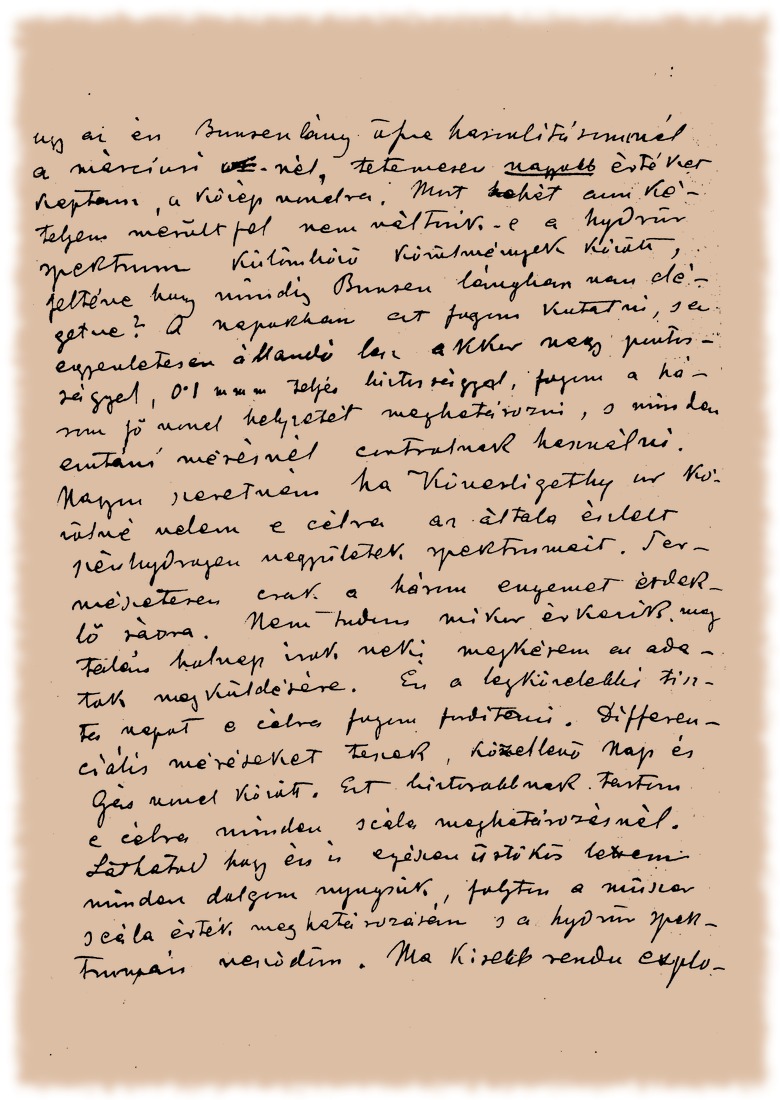 ugy az én Bunsenláng üpe hasonlitásomnál
a márciusi -nél, tetemesen nagyobb értéket
kaptam, a közép vonalra. Most tehát azon ké-
tely merült fel nem változik-e a hydrür
spektrum különböző körülmények között,
feltéve hogy mindig Bunsen lángban van elé-
getve? A napokban ezt fogom kutatni, s ez
egyenletesen állandó lesz akkor nagy pontos-
sággal, 0.1 mmm teljes biztossággal, fogom a há-
rom fő vonal helyzetét meghatározni, s minden
ezutáni mérésnél controlnak használni.
Nagyon szeretném ha Kövesligethy ur kö-
zölné velem e célra az általa észlelt
szénhydrogen vegyületek spektrumait. Ter-
mészetesen csak a három engemet érdek-
lő sávra. Nem tudom mikor érkezik meg
talán holnap irok neki megkérem az ada-
tok megküldésére. Én a legközelebbi tisz-
ta napot e célra fogom forditani. Differen-
ciális méréseket teszek, közellevő Nap és
Gáz vonal között. Ezt biztosabbnak tartom
e célra minden scála meghatározásnál.
Láthatod hogy én is egészen üstökös lettem
minden dolgom nyugszik, folyton a műszer
scála érték meghatározásán s a hydrür spek-
trumán vesződöm. Ma kisebb rendü explo-